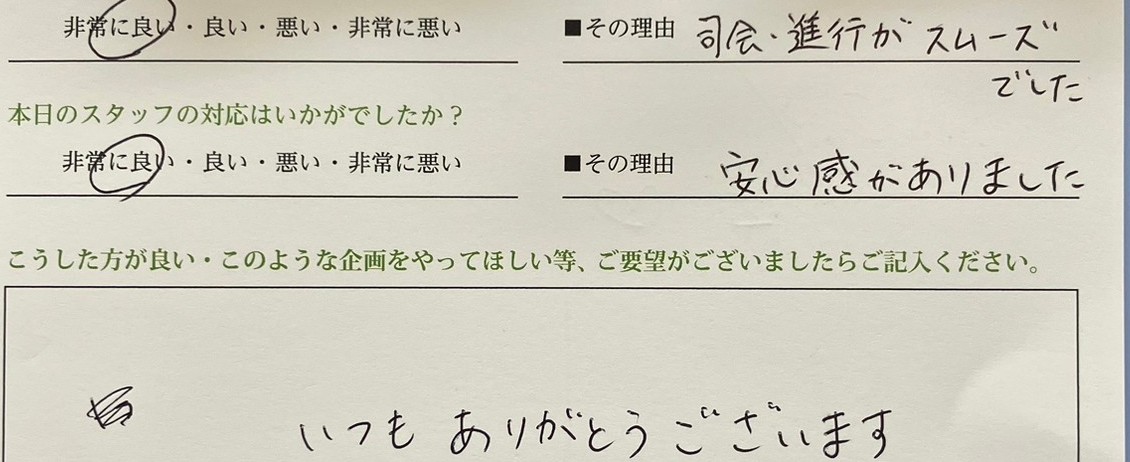 非常に良い・良い・悪い・非常に悪い ■その理由 司会・進行がスムーズ
でした
本日のスタッフの対応はいかがでしたか？
非常に良い・良い・悪い・非常に悪い ■その理由 安心感がありました
こうした方が良い・このような企画をやってほしい等、ご要望がございましたらご記入ください。
いつもありがとうございます